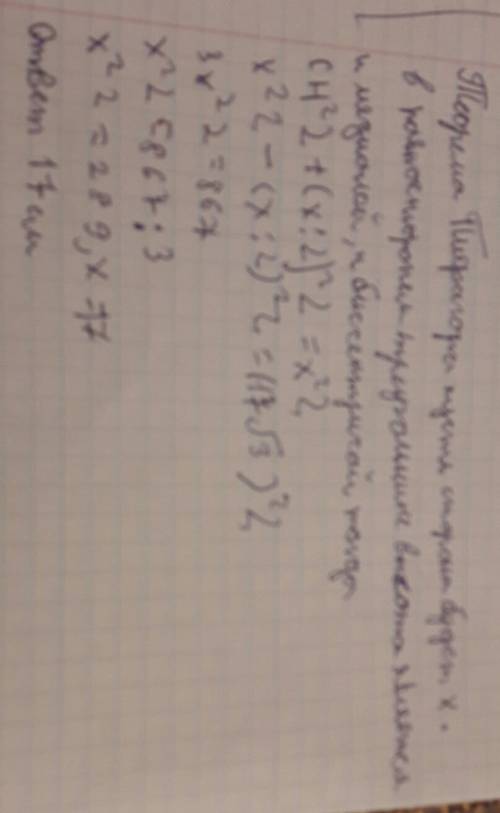 Теорема Пифагора пусть сторона будет x.
в равностороннем треугольнике высота является
и медианой, и биссектрисой, тогда
CH²2+(x:2)²2=x²2
x²2-(x:2)²2=(17√3)²2
3x²2=867
x²2=867:3
x²2=289, x=17
Ответ 17 см